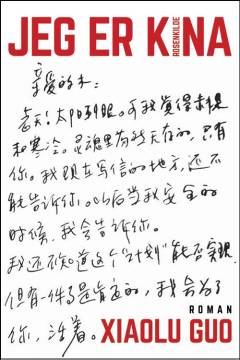 JEG ER KINA
ROSENKILDE
亲爱的木:
老天!太阳刺眼。可我觉得赤裸
和寒冷。灵魂里 的,只有
你。我现在写信的地方,还不
能告诉你。以后当我安全的
时候,我会告诉你。
我还不知道这个“计划”能否实现
但有一件事是肯定的,我会为了
你,活着。
ROMAN
XIAOLU GUO